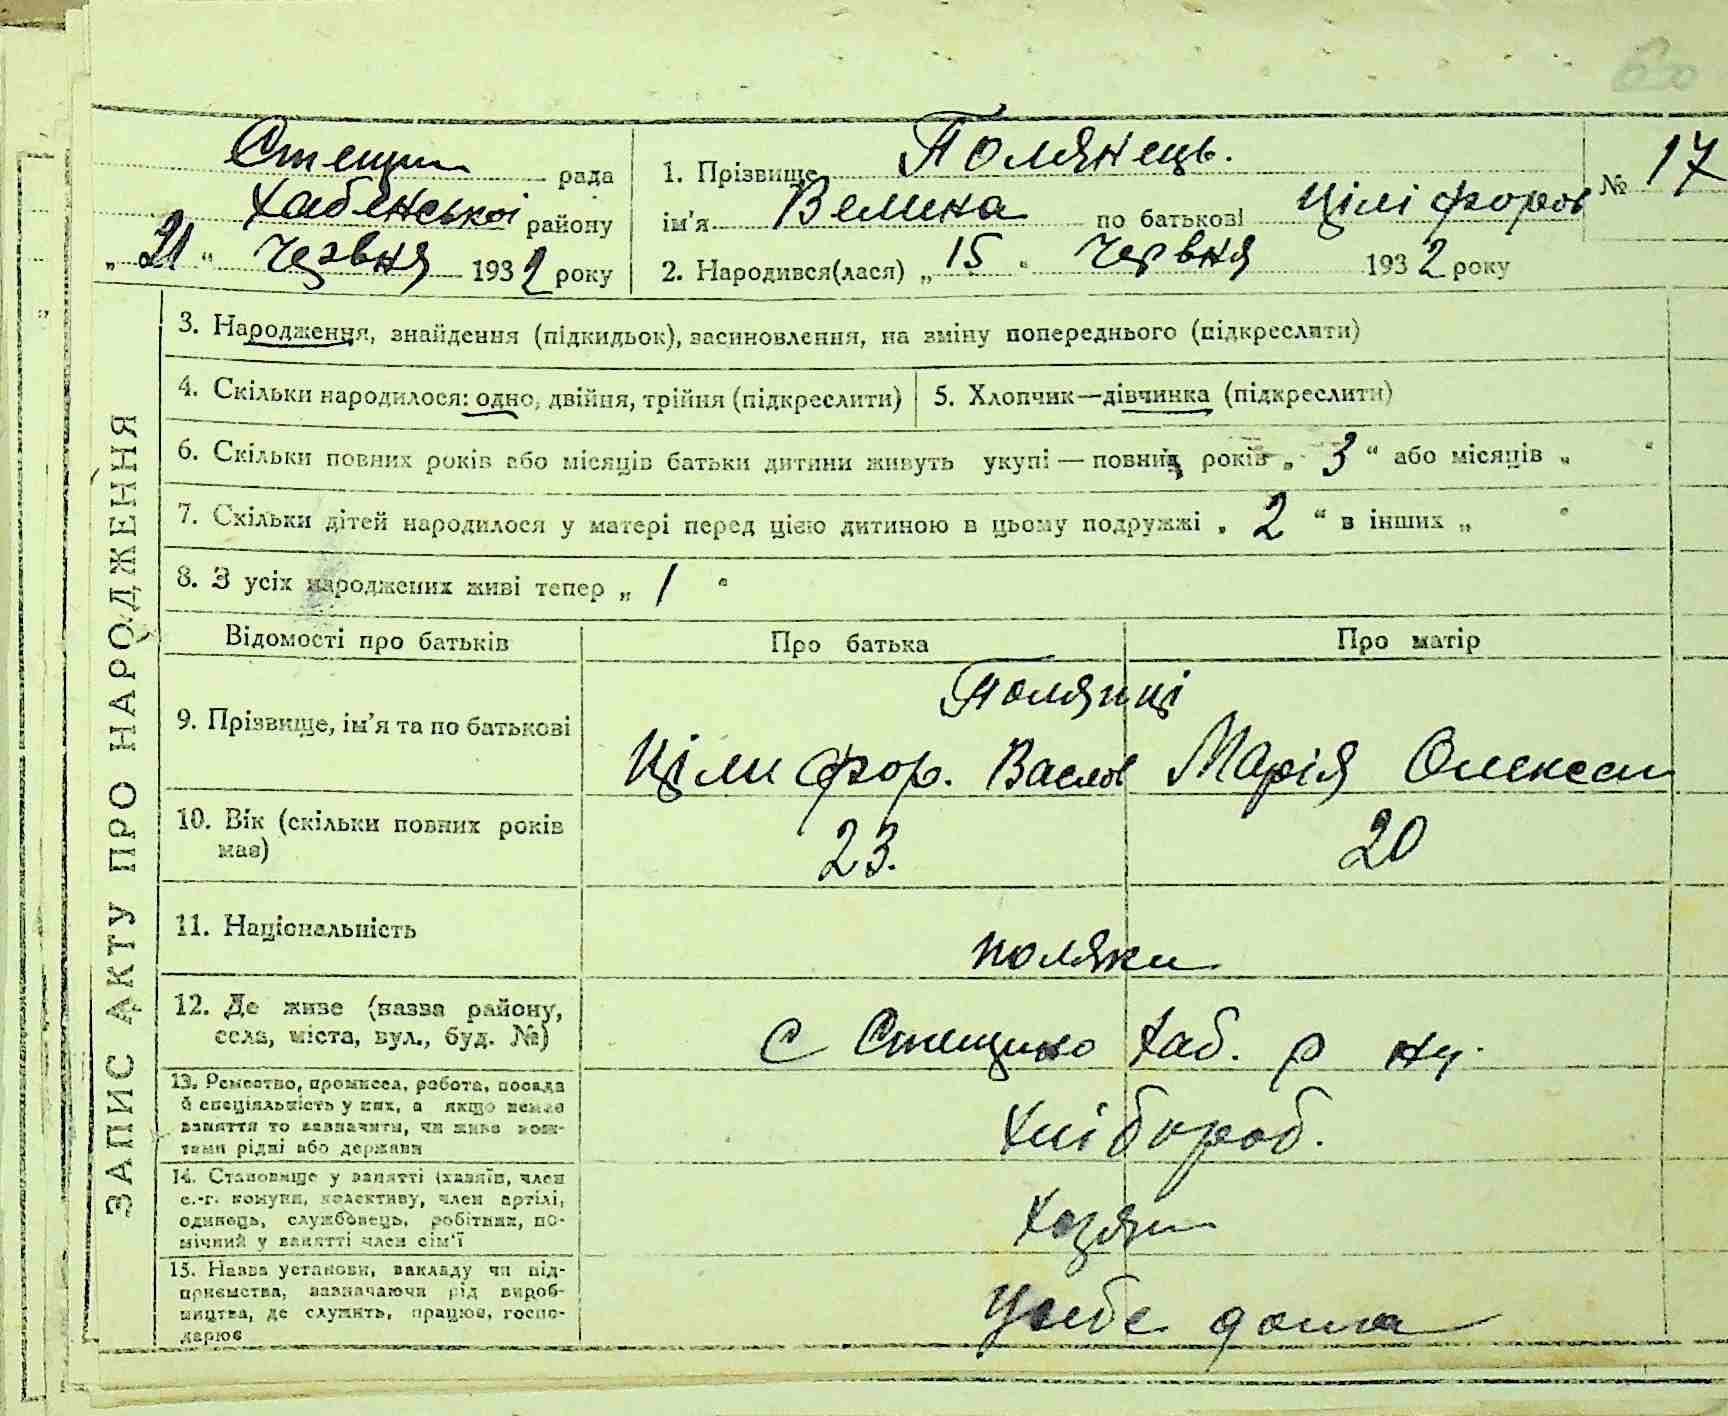 Стещин рада
Хабенської району
„ 21 “ Червня 1932 року
1. Прізвище Полянець.
ім'я Велина по батькові Ціліфоров
2. Народився(лася) „ 15 “ Червня 1932 року
№ 17
ЗАПИС АКТУ ПРО НАРОДЖЕННЯ
3. Народження, знайдення (підкидьок), засиновлення, на зміну попереднього (підкреслити)
4. Скільки народилося: одно, двійня, трійня (підкреслити)
5. Хлопчик—дівчинка (підкреслити)
6. Скільки повних років або місяців батьки дитини живуть укупі — повних років „ 3 “ або місяців „ “
7. Скільки дітей народилося у матері перед цією дитиною в цьому подружжі „ 2 “ в інших „ “
8. З усіх народжених живі тепер „ 1 “
Відомості про батьків Про батька Про матір
Полянці
9. Прізвище, ім'я та по батькові Цілифор. Васлов Марія Олексан
10. Вік (скільки повних років має) 23. 20
11. Національність поляки
12. Де живе (назва району, села, міста, вул., буд. №) с Стещино Хаб. р ну.
13. Ремество, промисел, робота, посада
й спеціяльність у них, а якщо немає
заняття то зазначити, чи живе кош-
тами рідні або держави
Хлібороб.
14. Становище у занятті (хазяїн, член
с.-г. комуни, колективу, член артілі,
одинець, службовець, робітник, по-
мічний у занятті член сім'ї
Хазяін
15. Назва установи, закладу чи під-
приємства, зазначаючи рід вироб-
ництва, де служить, працює, госпо-
дарює
У себе дома